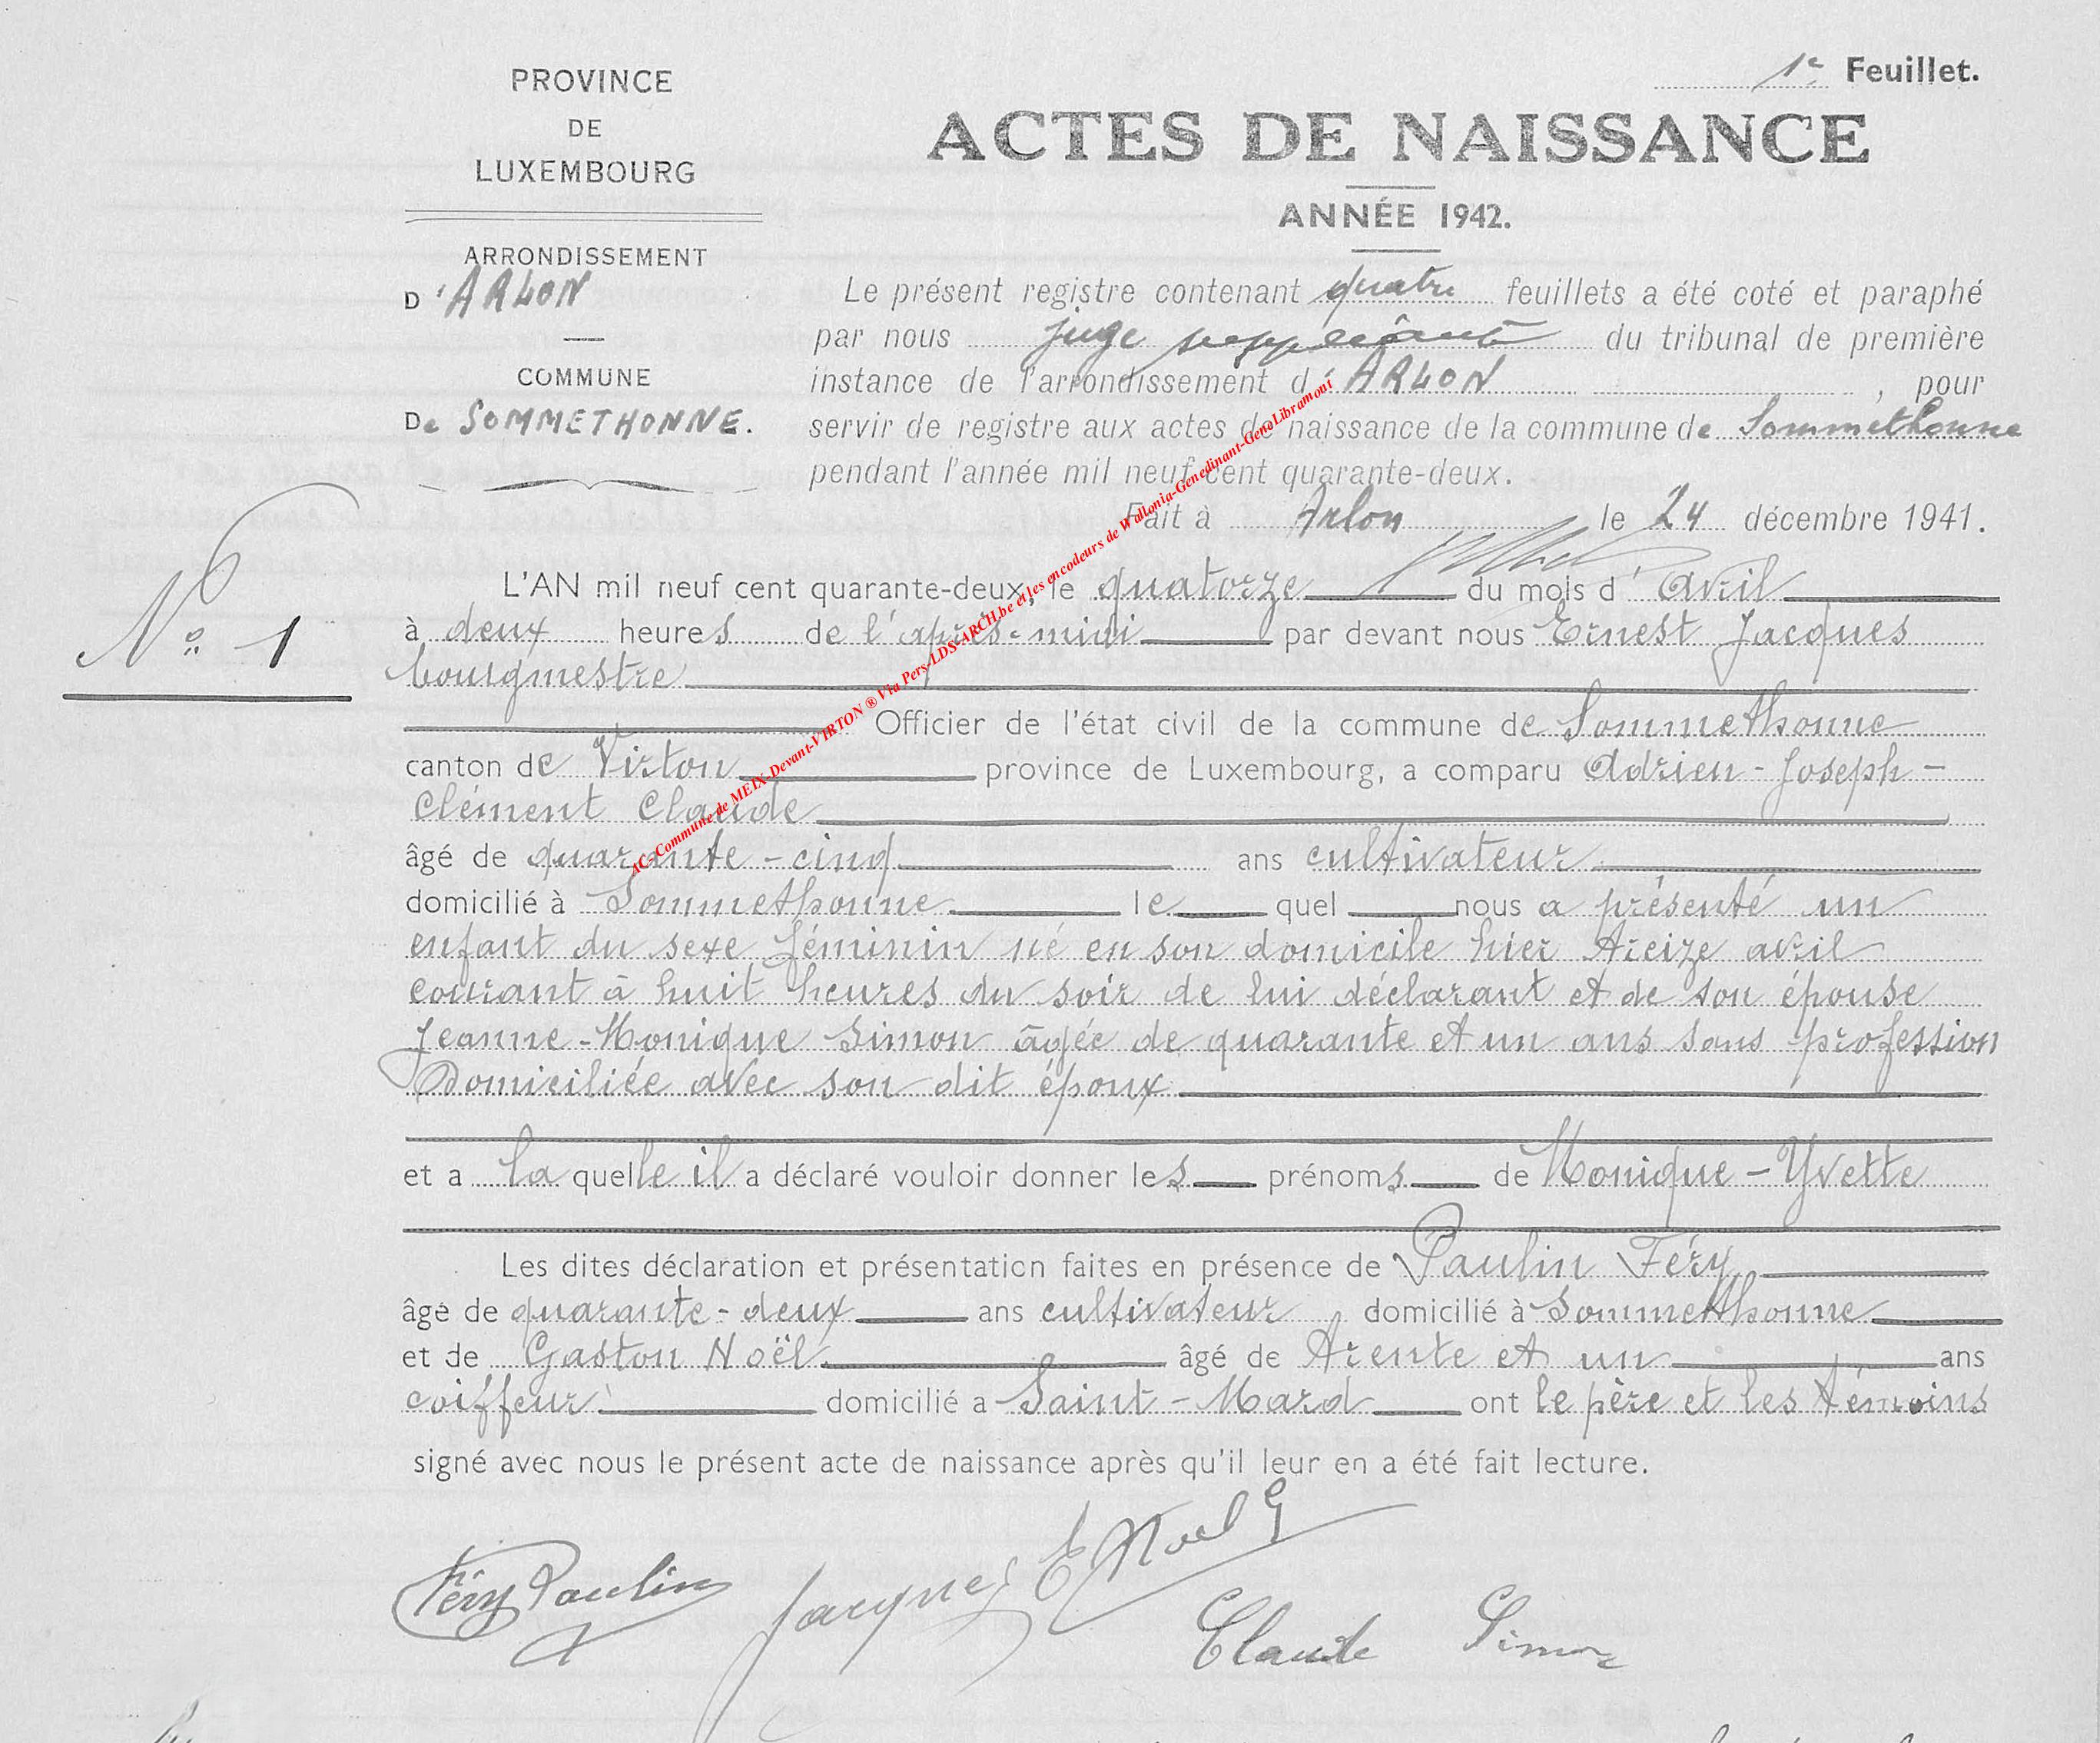 1e Feuillet.
PROVINCE
DE
LUXEMBOURG
ARRONDISSEMENT
D'ARLON
COMMUNE
De SOMMETHONNE.
ACTES DE NAISSANCE
ANNÉE 1942.
Le présent registre contenant quatre feuillets a été coté et paraphé
par nous juge suppléant du tribunal de première
instance de l'arrondissement d'ARLON, pour
servir de registre aux actes de naissance de la commune de Sommethonne
pendant l'année mil neuf cent quarante-deux.
Fait à Arlon le 24 décembre 1941.
N° 1
L'AN mil neuf cent quarante-deux, le quatorze du mois d'avril
à deux heures de l'après-midi par devant nous Ernest Jacques
bourgmestre
Officier de l'état civil de la commune de Sommethonne
canton de Virton province de Luxembourg, a comparu Adrien-Joseph-
Clément Claude
âgé de quarante-cinq ans cultivateur
domicilié à Sommethonne le quel nous a présenté un
enfant du sexe féminin né en son domicile hier treize avril
courant à huit heures du soir de lui déclarant et de son épouse
Jeanne-Monique Simon âgée de quarante et un ans sans profession
Domiciliée avec son dit époux
et a la quelle il a déclaré vouloir donner les prénoms de Monique-Yvette
Les dites déclaration et présentation faites en présence de Paulin Féry
âgé de quarante-deux ans cultivateur domicilié à Sommethonne
et de Gaston Noël âgé de trente et un ans
coiffeur domicilié a Saint-Mard ont le père et les témoins
signé avec nous le présent acte de naissance après qu'il leur en a été fait lecture.
Féry Paulin
Jacques E
Noel G
Claude Simon
AC-Commune de MEIX-Devant-VIRTON ® Via Pers-LDS-ARCH.be et les encodeurs de Wallonia-Genedinant-GenoLibramont